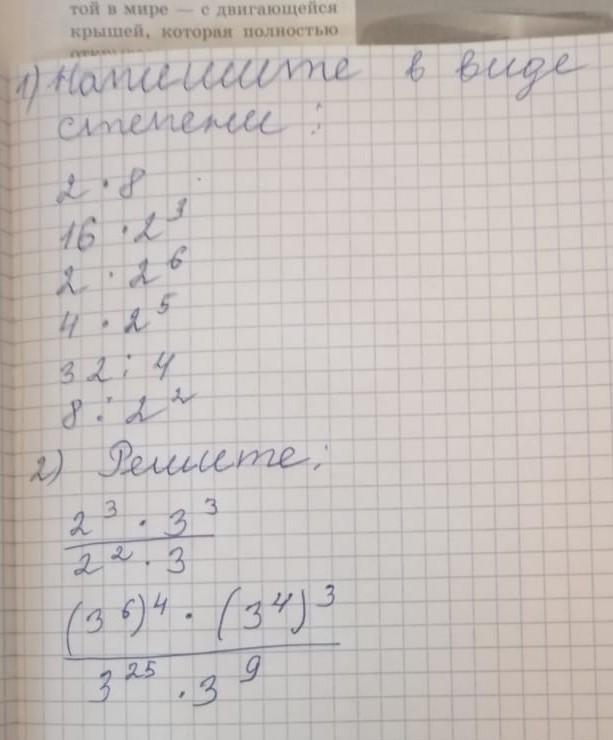 той в мире — с двигающейся
крышей, которая полностью
1) Напишите в виде
степени:
2 · 8
16 · 2³
2 · 2⁶
4 · 2⁵
32 : 4
8 : 2²
2) Решите:
2³ · 3³
2² · 3
(3⁶)⁴ · (3⁴)³
3²⁵ · 3⁹